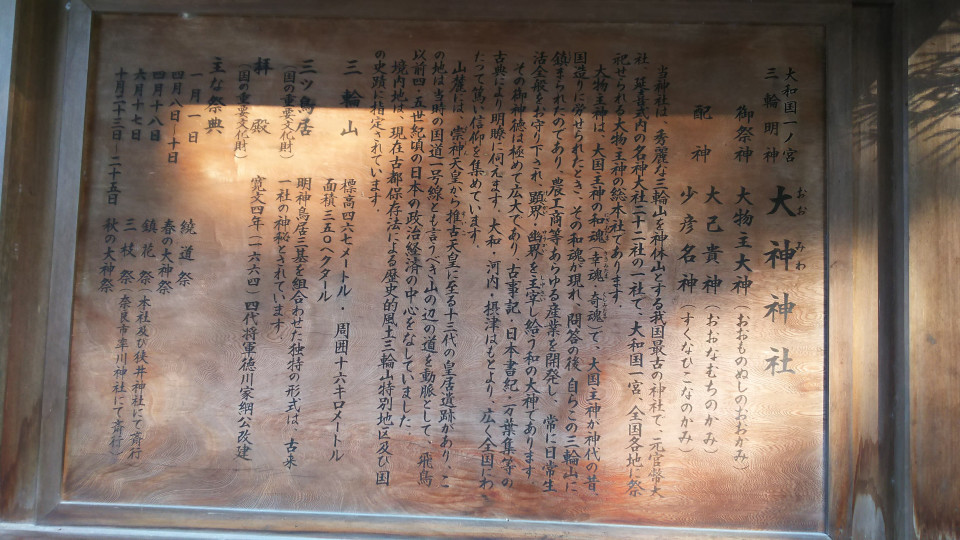 大和国一ノ宮
三輪明神
大神神社
おお みわ
御祭神 大物主大神(おおものぬしのおおかみ)
配神 大己貴神(おおなむちのかみ)
少彦名神(すくなひこなのかみ)
当神社は、秀麗な三輪山を神体山とする我国最古の神社で、元官幣大
社、延喜式内の名神大社二十二社の一社で、大和国一宮、全国各地に祭
祀せられる大物主神の総本社であります。
大物主神は、大国主神の和魂(幸魂、奇魂)で、大国主神が神代の昔、
国造りに労せられたとき、その和魂が現れ、問答の後、自らこの三輪山に
鎮まられたのであり、農工商等あらゆる産業を開発し、常に日常生
活全般をお守り下され、顕界、幽界を主宰し給う和の大神であります。
その御神徳は極めて広大であり、古事記・日本書紀・万葉集等の
古典により明瞭に伺えます。大和・河内・摂津はもとより、広く全国にわ
たって篤い信仰を集めています。
山麓には、崇神天皇から推古天皇に至る十三代の皇居遺跡があり、こ
の地は当時の国道一号線とも言うべき山の辺の道を動脈として、飛鳥
以前四・五世紀頃の日本の政治経済の中心をなしていました。
境内地は、現在古都保存法による歴史的風土三輪山特別地区及び国
の史跡に指定されています。
三輪山 標高四六七メートル・周囲十六キロメートル
面積三五〇ヘクタール
三ツ鳥居 明神鳥居三基を組合わせた独特の形式は、古来
(国の重要文化財) 一社の神秘とされています。
拝殿 寛文四年(一六六四)四代将軍徳川家綱公改建
(国の重要文化財)
主な祭典
一月一日 繞道祭
四月八日―十日 春の大神祭
四月十八日 鎮花祭(本社及び狭井神社にて斎行)
六月十七日 三枝祭(奈良市率川神社にて斎行)
十月二十三日―二十五日 秋の大神祭